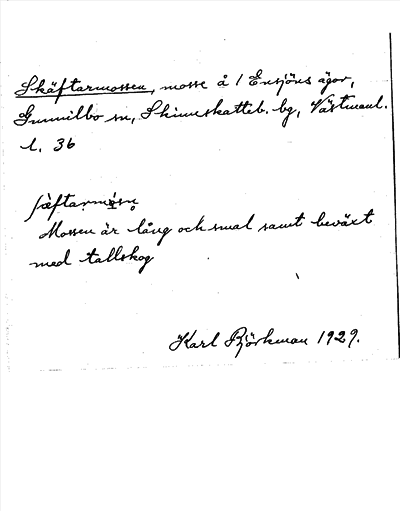 Skäftarmossen, mosse å 1 Ensjöns ägor,
Gunnilbo sn, Skinnskatteb. bg, Västmanl.
l. 36
Mossen är lång och smal samt beväxt
med tallskog
Karl Björkman 1929.